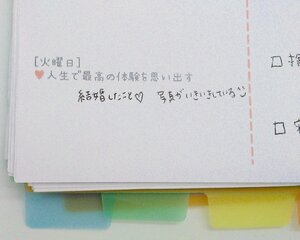 [火曜日]
♥人生で最高の体験を思い出す
結婚したこと♡ 写真がいきいきしている